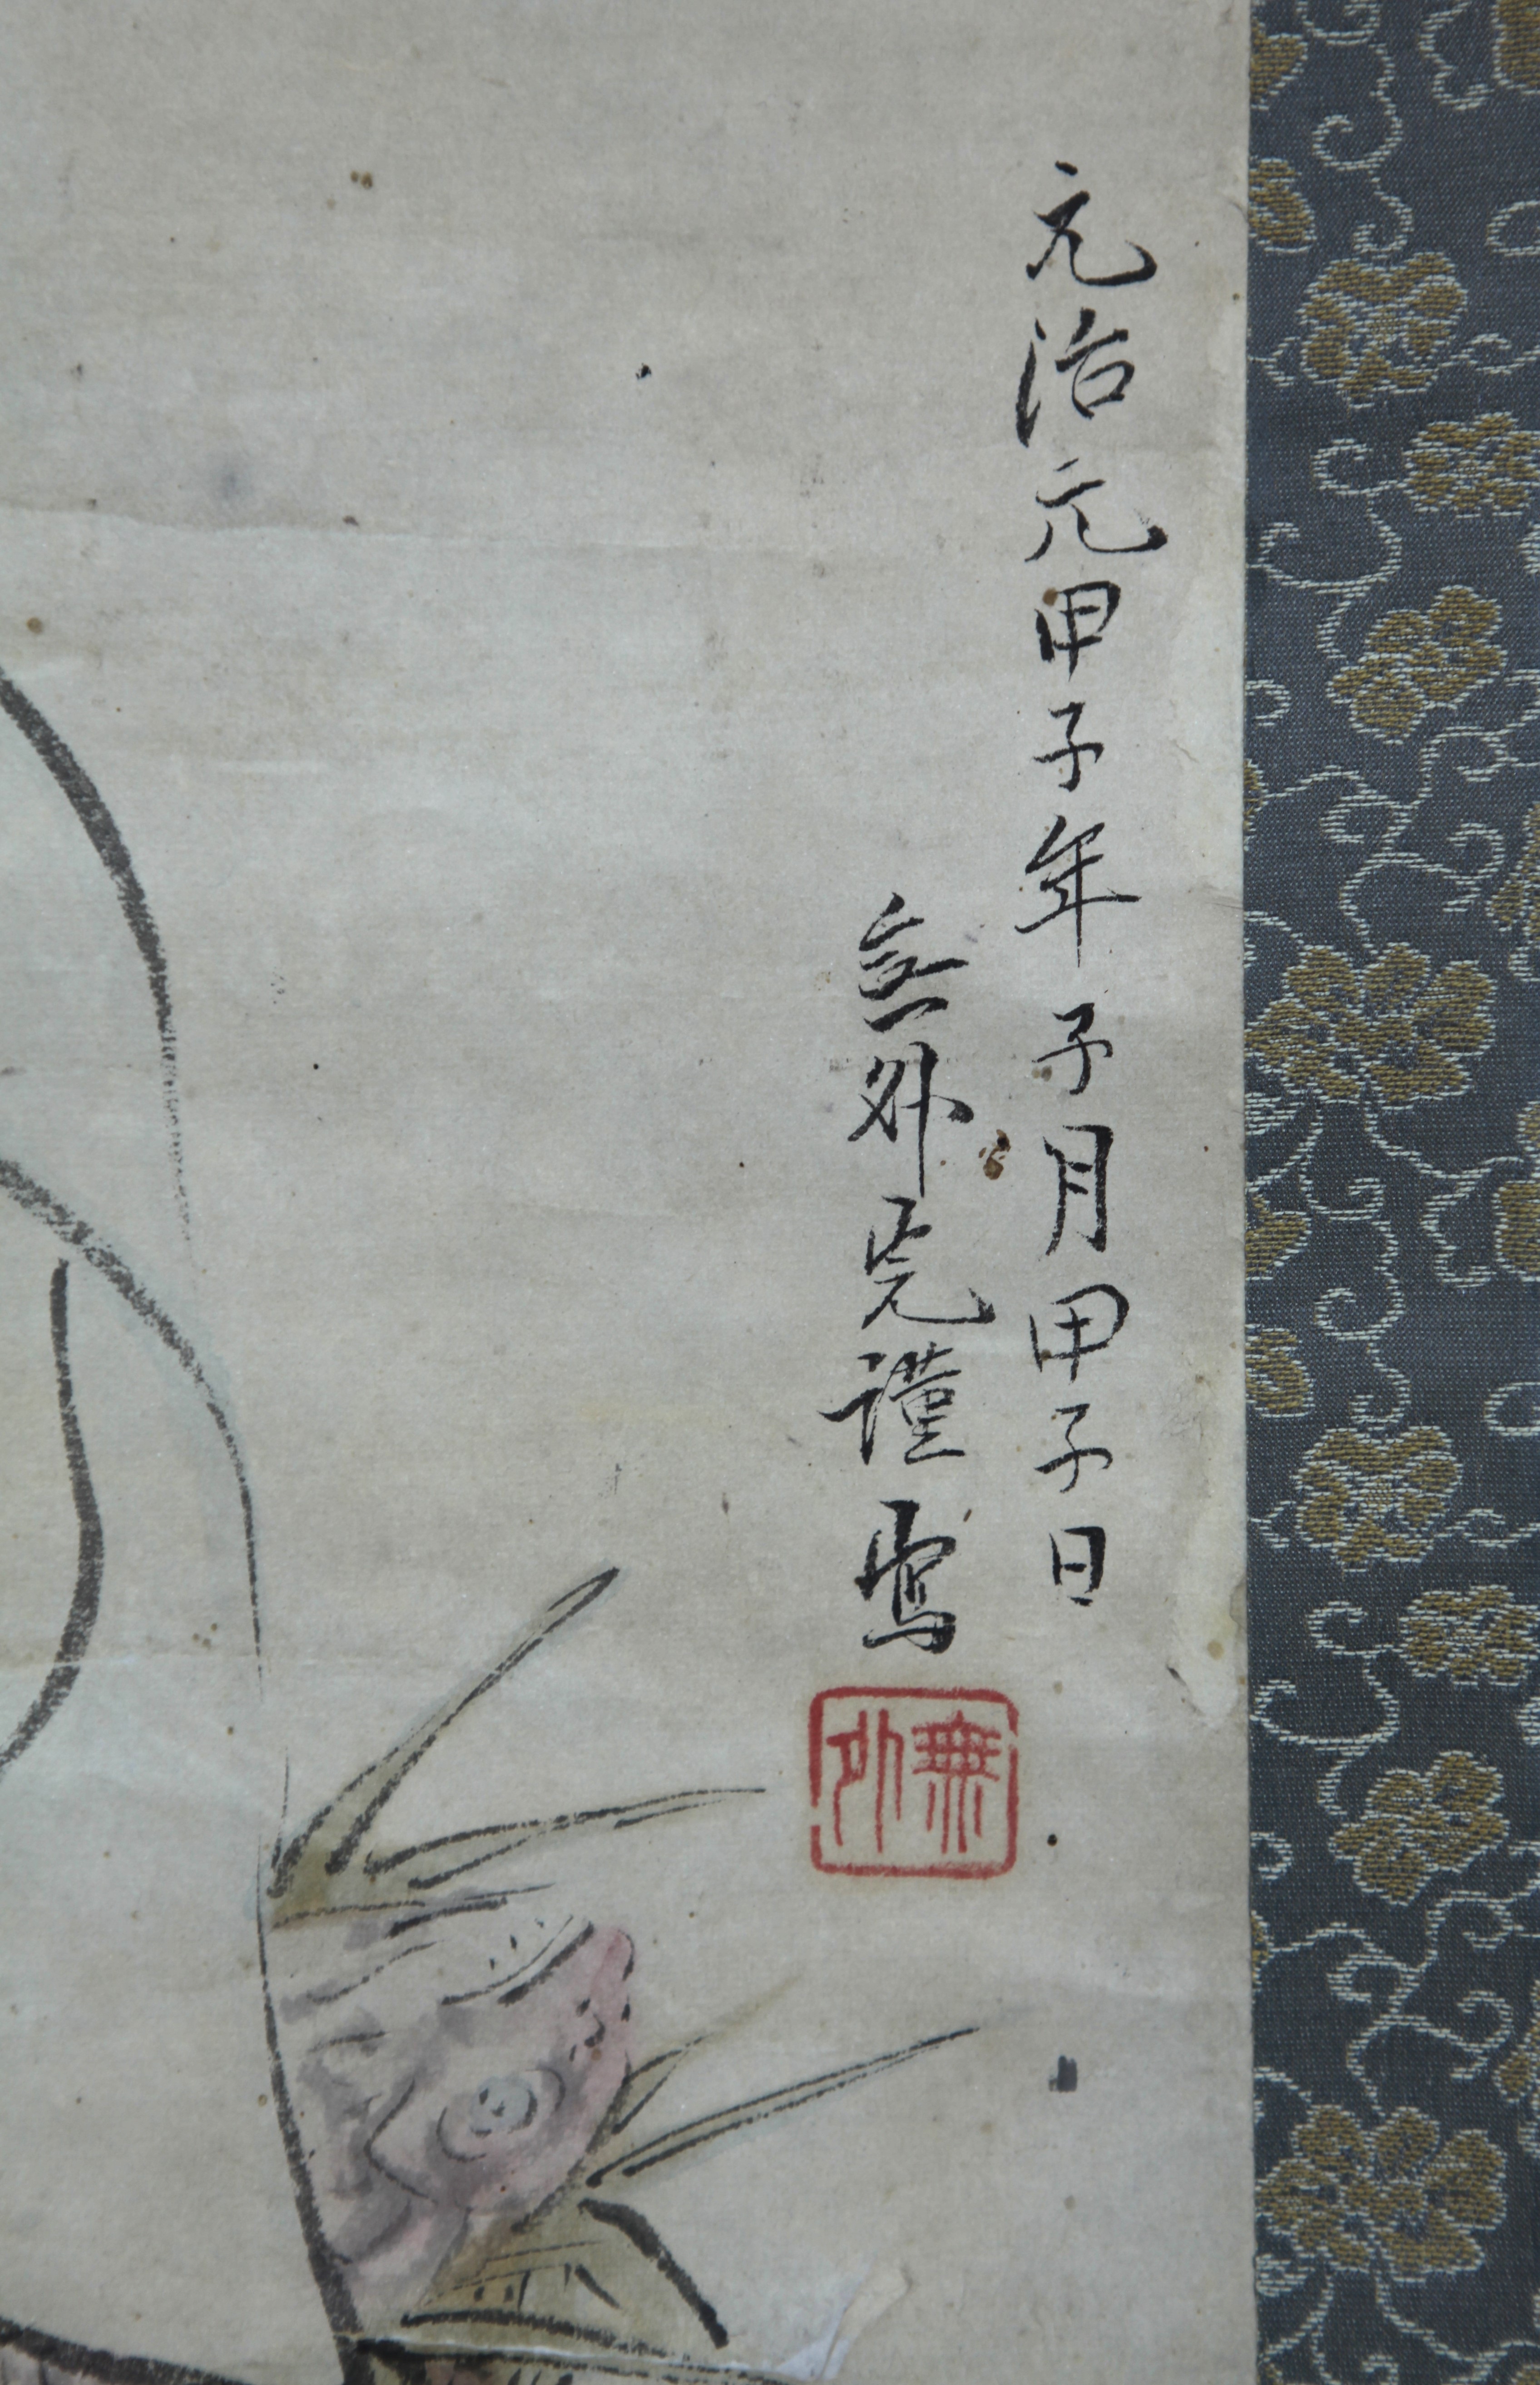 元治元甲子年子月甲子日
無外光謹寫
無外